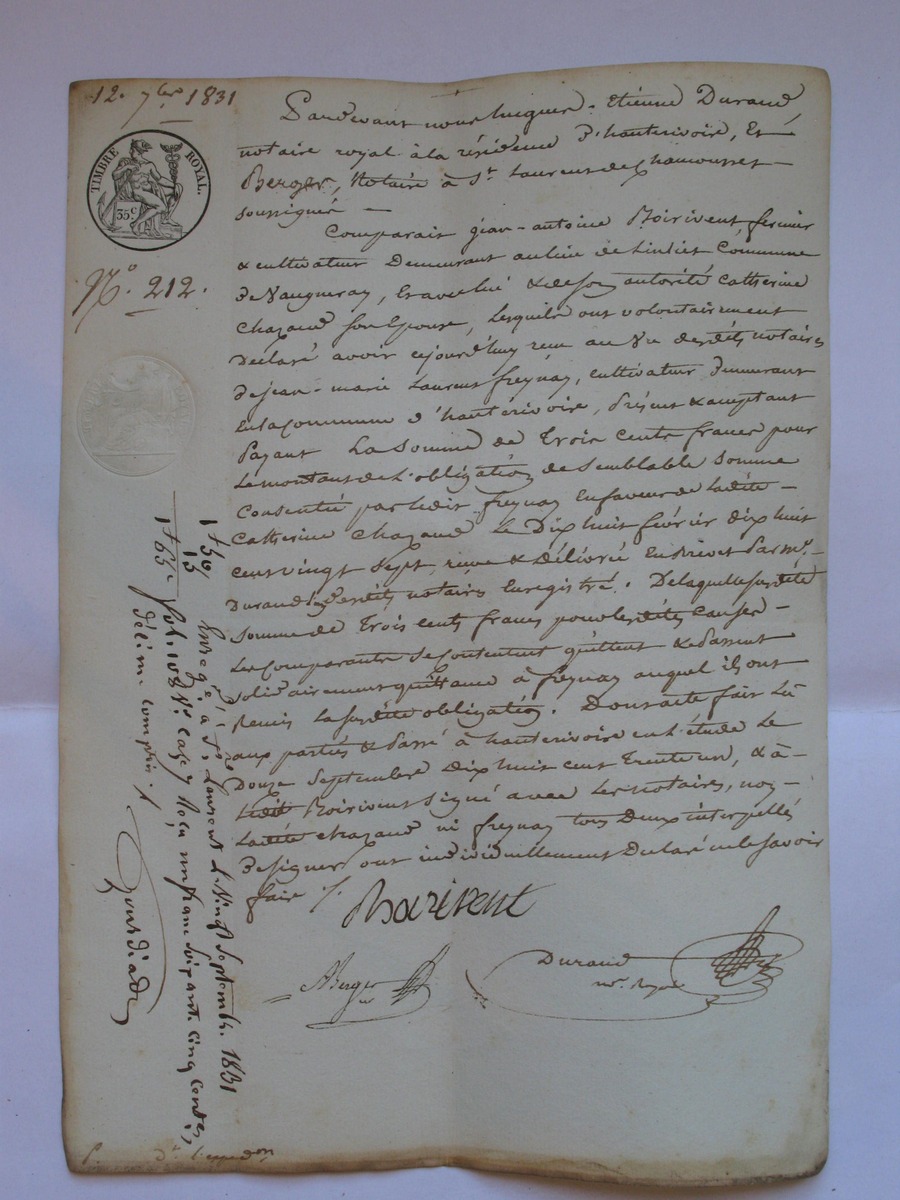 12. 7bre 1831
TIMBRE ROYAL.
35c
N.o 212.
Pardevant nous Etienne Durand,
notaire royal à la résidence d'hauterivoire, Et
Berger, Notaire à St. Laurent de Chamousset
soussignés
Comparait jean-antoine Boirivent, fermier
& cultivateur Demeurant au lieu de Commune
de Vaugneray, & de son autorité Catherine
Chazaud son Epouse, Lesquels ont volontairement
Déclaré avoir cejourd'huy reçu au Vu desdits notaires
de jean-marie Laurent freynay, cultivateur demeurant
En la Commune d'hauterivoire, présent & acceptant
Payant La Somme de Trois cents francs pour
Le montant de L'obligation de Semblable Somme
Consentie par Ledit freynay En faveur de Ladite
Catherine Chazaud Le Dix huit février dix huit
cent vingt Sept, reçue & Délivrée En Brevet Par me.
Durand desdits notaires Enregistré. De laquelle susdite
Somme de Trois cents francs pour lesdites causes
Les Comparants Se Contentent quittent & Passent
Solidairement quittance à freynay auquel ils ont
Remis La susdite obligation. Dont acte fait Lû
aux parties & Passé à hauterivoire en L'étude Le
Douze Septembre Dix huit cent Trente un, & à
Ledit Boirivent signé avec Les notaires, non
Ladite Chazaud ni freynay tous Deux interpellés
De signer ont individuellement Déclaré ne le savoir
faire /.
Boirivent
Berger
Durand
nre. Royal
1 f 50
15
1 f 65c
Enregé. à St. Laurent Le Vingt Septembre 1831
fol. 108 Vo. Case 7 Reçu un franc soixante cinq centes,
délime compris /.